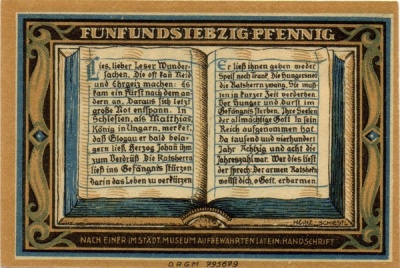 FUNFUNDSIEBZIG·PFENNIG
Lies, lieber Leser Wunder-
sachen, Die oft kan Neid
und Ehrgeiz machen: Es
kam ein Fürst nach dem an-
dern an. Daraus sich letzt
große Not entspann. In
Schlesien, als Matthias,
König in Ungarn, merket,
daß Glogau er bald bela-
gern ließ, Herzog Johañ ihm
zum Verdrüß. Die Ratsherrn
ließ ins Gefängnis stürzen
darin das Leben zu verkürzen
Er ließ ihnen geben weder
Speis noch Trank. Die Hungersnot
die Ratsherrn zwang, Sie muß-
ten in kurzer Zeit verderben.
Vor Hunger und Durst im
Gefängnis sterben. Ihre Seelen
der allmächtige Gott In sein
Reich aufgenommen hat.
Da tausend und vierhundert
Jahr Achtzig und acht die
Jahreszahl war. Wer dies liest
der sprech: Der armen Ratsherrn
wollst dich, o Gott, erbarmen.
HEINZ SCHIESTL
NACH EINER IM STÄDT. MUSEUM AUFBEWAHRTEN LATEIN. HANDSCHRIFT
D.R.G.M. 795679